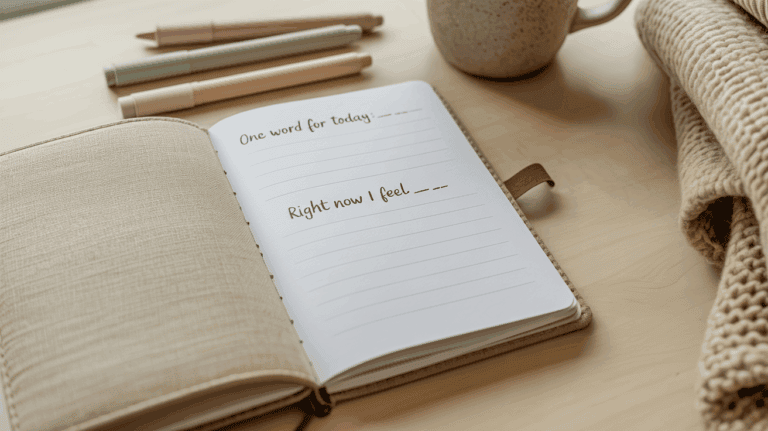 One word for today: __ __ __
Right now I feel __ __ __